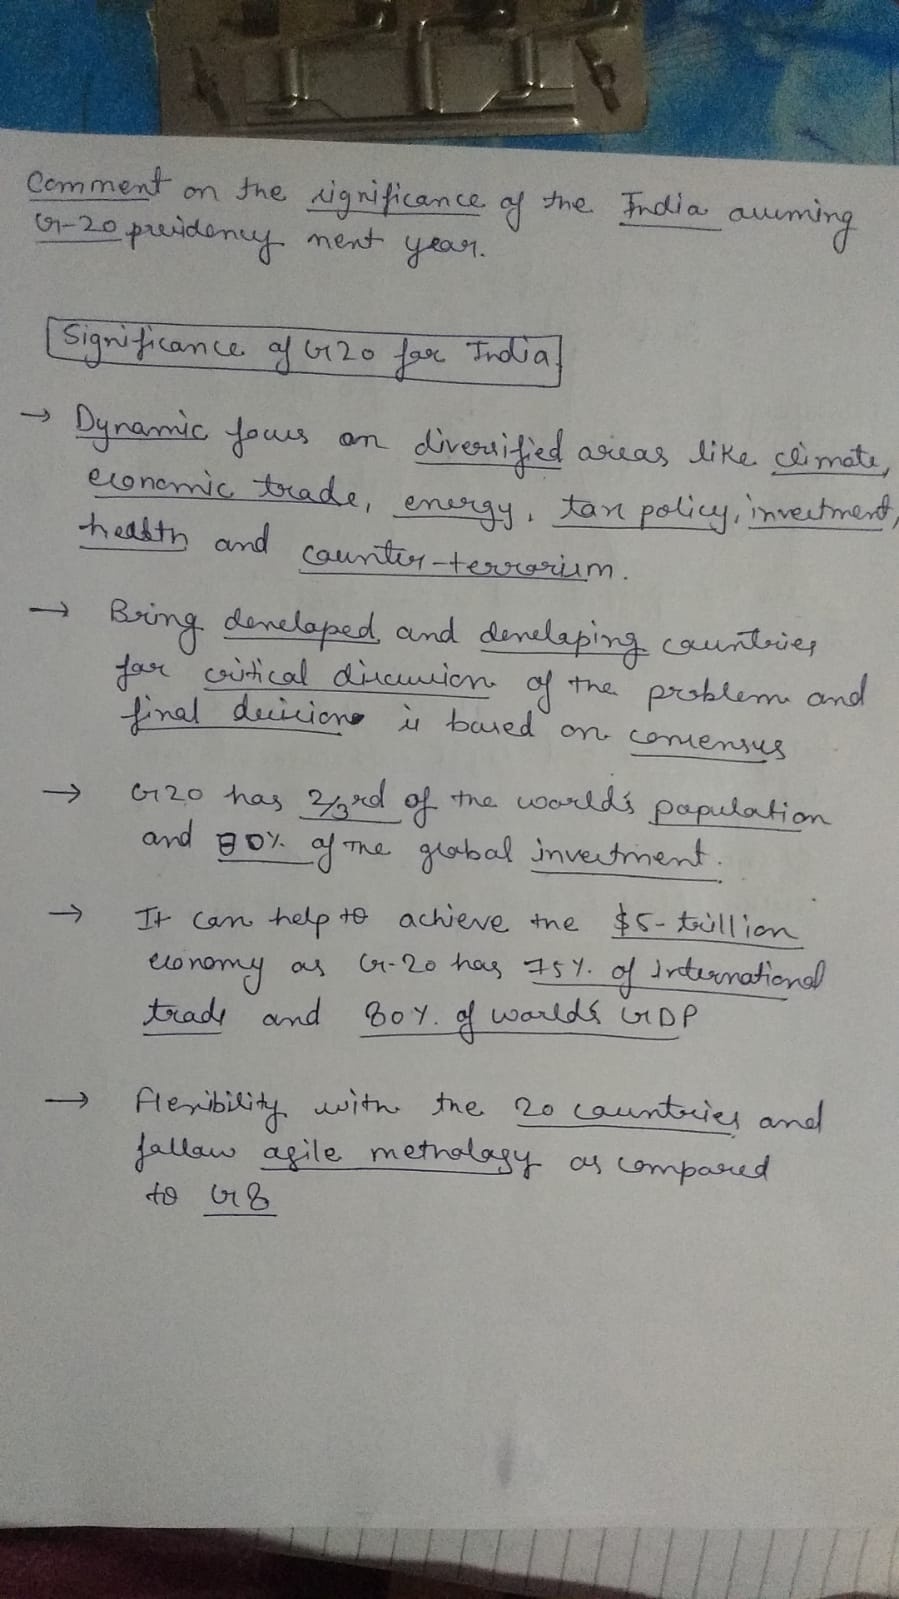 Comment on the significance of the India assuming
G-20 presidency next year.
Significance of G20 for India
→ Dynamic focus on diversified areas like climate,
economic trade, energy, tax policy, investment,
health and counter-terrorism.
→ Bring developed and developing countries
for critical discussion of the problem and
final decision is based on consensus
→ G20 has 2/3rd of the world's population
and 80% of the global investment.
→ It can help to achieve the $5-trillion
economy as G-20 has 75% of international
trade and 80% of world's GDP
→ Flexibility with the 20 countries and
follow agile methology as compared
to G8